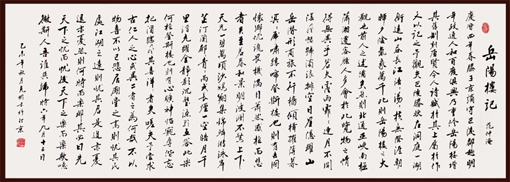 岳陽樓記 范仲淹
慶曆四年春滕子京謫守巴陵郡越明
年政通人和百廢俱興乃重修岳陽樓增
其舊制刻唐賢今人詩賦於其上屬予作
文以記之予觀夫巴陵勝狀在洞庭一湖
銜遠山吞長江浩浩湯湯橫無際涯朝
暉夕陰氣象萬千此則岳陽樓之大
觀也前人之述備矣然則北通巫峽南極
瀟湘遷客騷人多會於此覽物之情
得無異乎若夫霪雨霏霏連月不開
陰風怒號濁浪排空日星隱曜山
岳潛形商旅不行檣傾楫摧薄暮
冥冥虎嘯猿啼登斯樓也則有去國
懷鄉憂讒畏譏滿目蕭然感極而悲
者矣至若春和景明波瀾不驚上下
天光一碧萬頃沙鷗翔集錦鱗游泳岸
芷汀蘭郁郁青青而或長煙一空皓月千
里浮光躍金靜影沉璧漁歌互答此樂
何極登斯樓也則有心曠神怡寵辱偕忘
把酒臨風其喜洋洋者矣嗟夫予嘗求
古仁人之心或異二者之為何哉不以
物喜不以己悲居廟堂之高則憂其民
處江湖之遠則憂其君是進亦憂
退亦憂然則何時而樂耶其必曰先
天下之憂而憂後天下之樂而樂歟噫
微斯人吾誰與歸時六年九月十五日